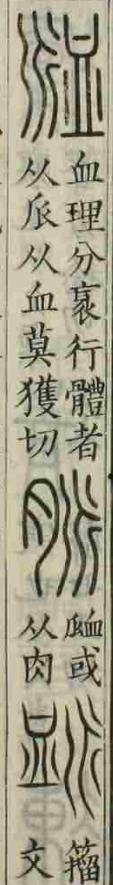 𧖴
血理分衺行體者
从𠂢从血莫獲切
脈
𧖴或
从肉
衇
籒
文